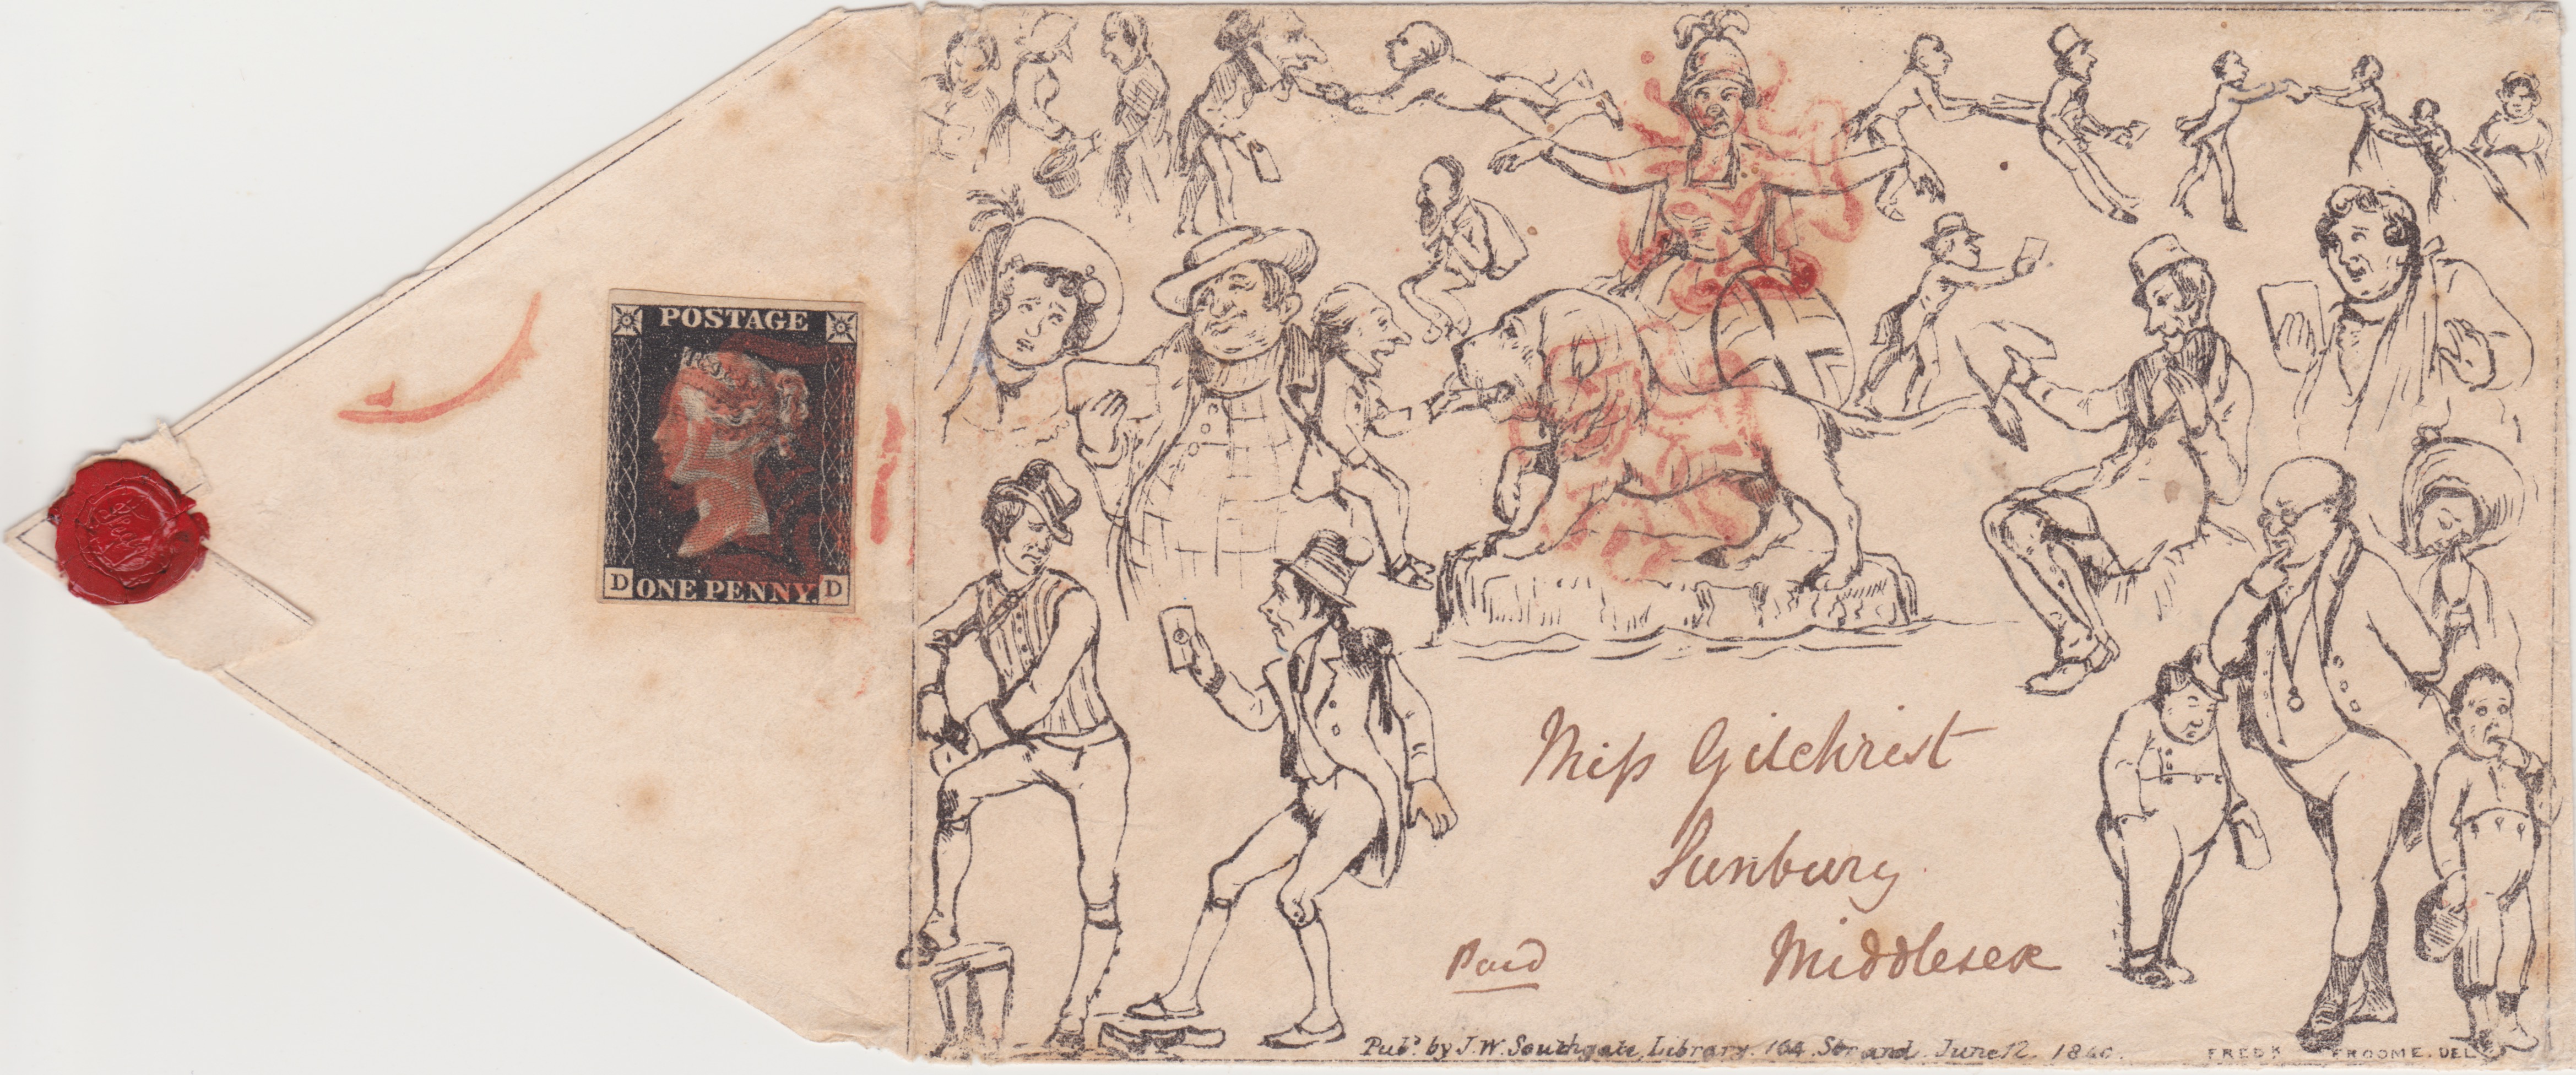 POSTAGE
D ONE PENNY. D
Miſs Gilchrist
Sunbury
Middlesex
Paid
Pubd. by J. W. Southgate, Library. 164 Strand. June 12. 1840.
FREDK FROOME. DEL